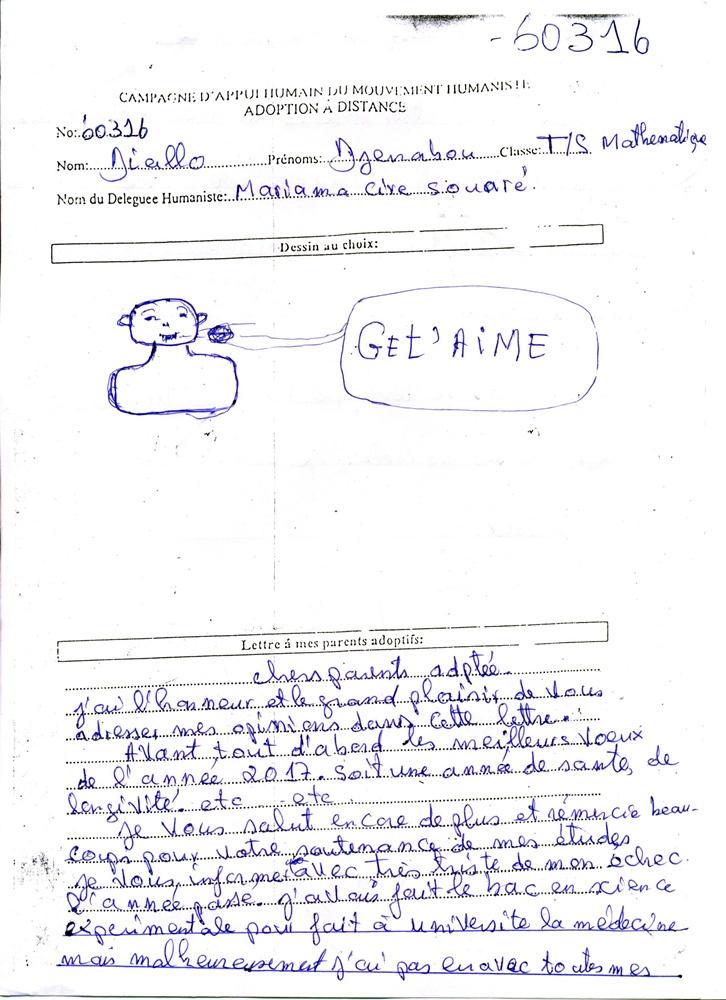 -60316
CAMPAGNE D'APPUI HUMAIN DU MOUVEMENT HUMANISTE
ADOPTION À DISTANCE
No: 60316
Nom: Diallo Prénoms: Djenabou Classe: T/S Mathematique
Nom du Deleguee Humaniste: Mariama Cire Souaré.
Dessin au choix:
GET'AiME
Lettre á mes parents adoptifs:
chers parents adptée.
j'ai l'honneur et le grand plaisir de vous
adresser mes opiniens dans cette lettre.
Avant tout d'abord les meilleurs voeux
de l'année 2017. Soit une année de santé, de
longivité etc etc
Je vous salut encore de plus et rémercie beau-
coups pour votre soutenance de mes études
je vous informe avec très triste de mon echec.
l'année passe. j'avais fait le bac en science
experimentale pour fait à université la médecine
mais malheureusement j'ai pas eu avec toutes mes